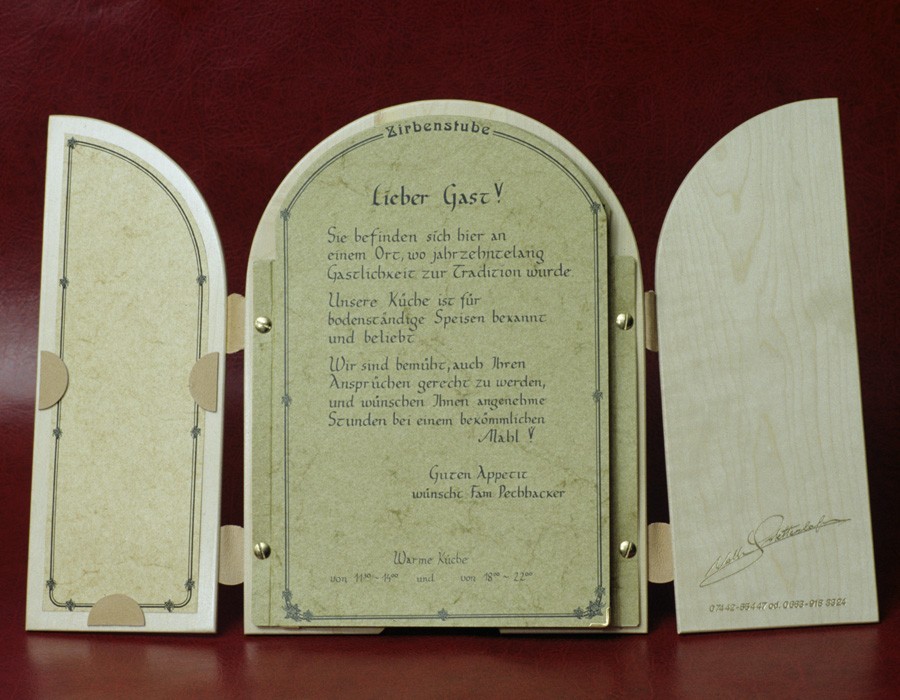 Zirbenstube
Lieber Gast!
Sie befinden sich hier an
einem Ort, wo jahrzehntelang
Gastlichkeit zur Tradition wurde
Unsere Küche ist für
bodenständige Speisen bekannt
und beliebt
Wir sind bemüht, auch Ihren
Ansprüchen gerecht zu werden,
und wünschen Ihnen angenehme
Stunden bei einem bekömmlichen
Mahl!
Guten Appetit
wünscht Fam Pechhacker
Warme Küche
von 11⁰⁰ ~ 15⁰⁰ und von 18⁰⁰ ~ 22⁰⁰